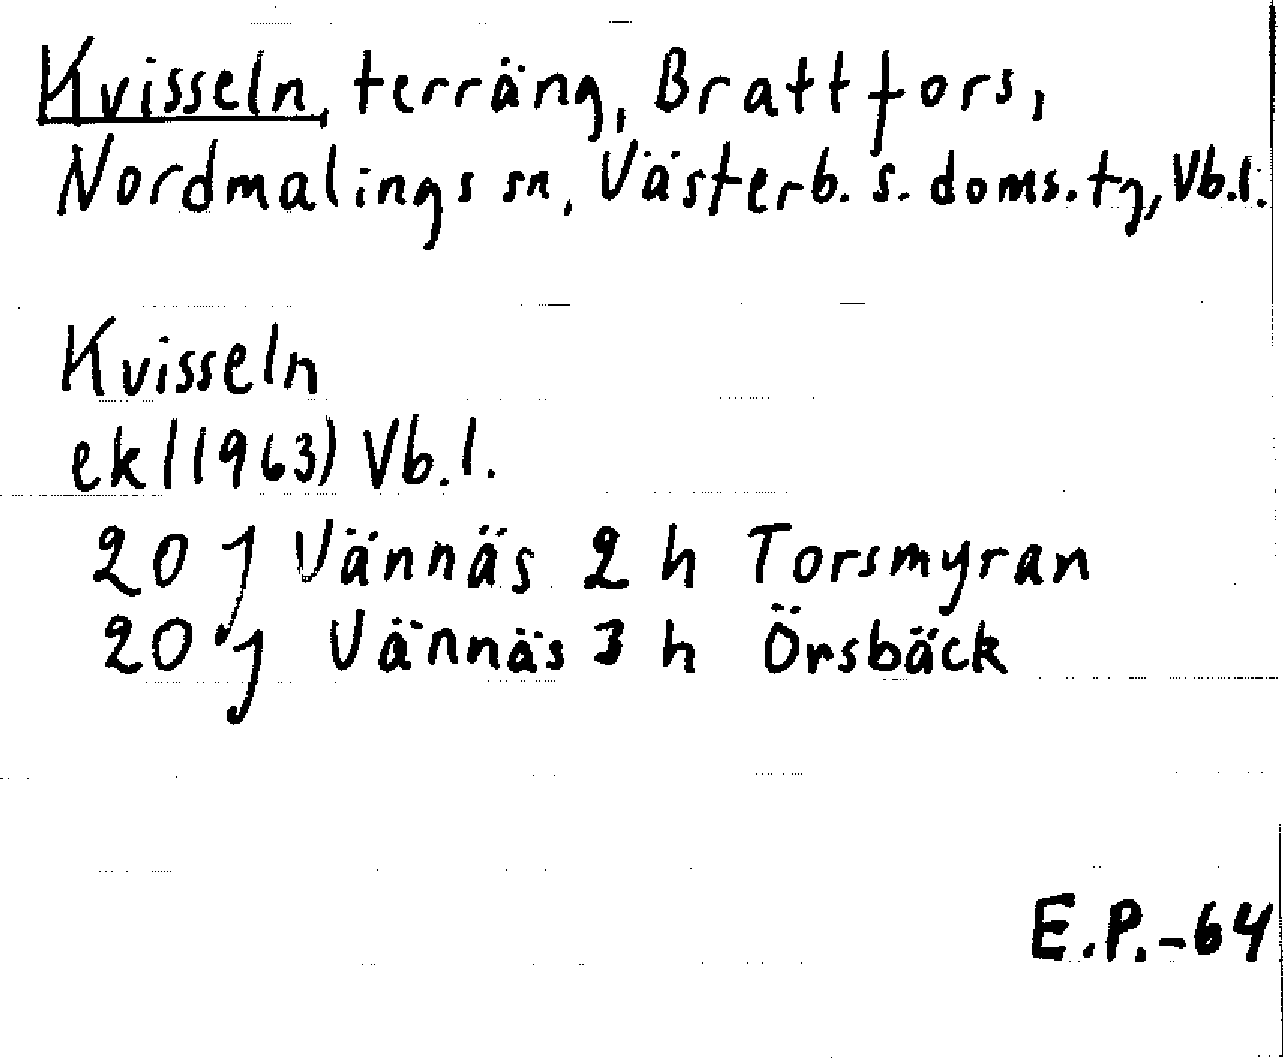 Kvisseln, terräng, Brattfors,
Nordmalings sn, Västerb. s. doms.tg, Vb.l.
Kvisseln
ek (1963) Vb.l.
20 J Vännäs 2 h Torsmyran
20 J Vännäs 3 h Örsbäck
E.P.-64